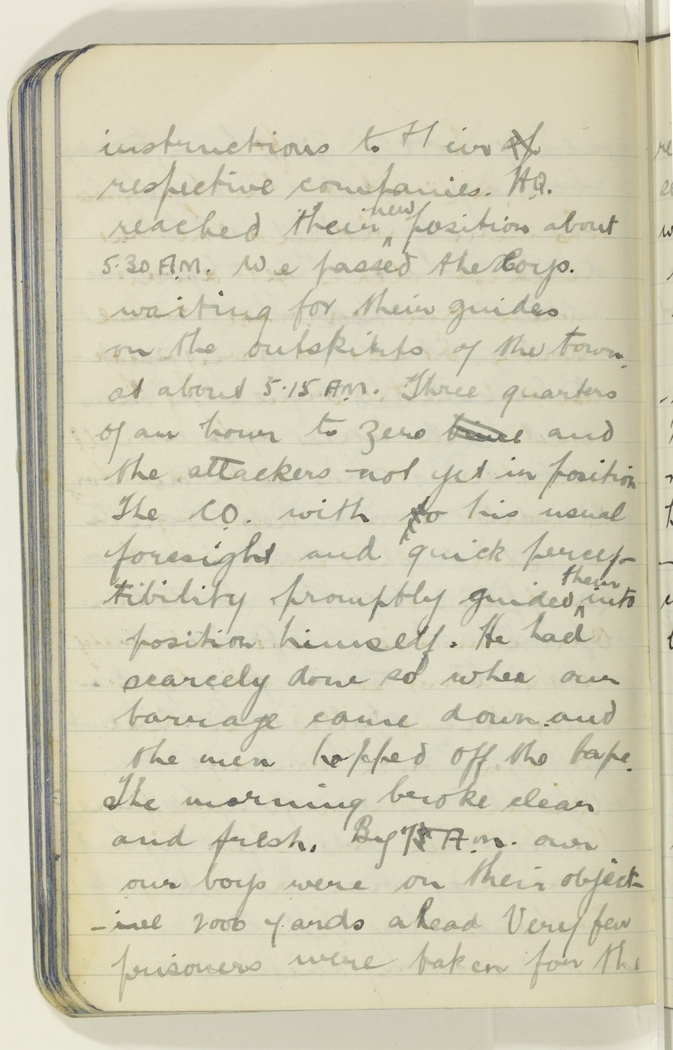 instructions to their
respective companies. HQ.
reached their new position about
5.30 A.M. We passed the Coys.
waiting for their guides
on the outskirts of the town
at about 5.15 A.M. Three quarters
of an hour to zero time and
the attackers not yet in position
The C.O. with to his usual
foresight and quick percep-
tibility promptly guided them into
position himself. He had
scarcely done so when our
barrage came down and
the men hopped off the tape.
The morning broke clear
and fresh. By A.m. our
our boys were on their object-
-ive 2000 yards ahead Very few
prisoners were taken for the